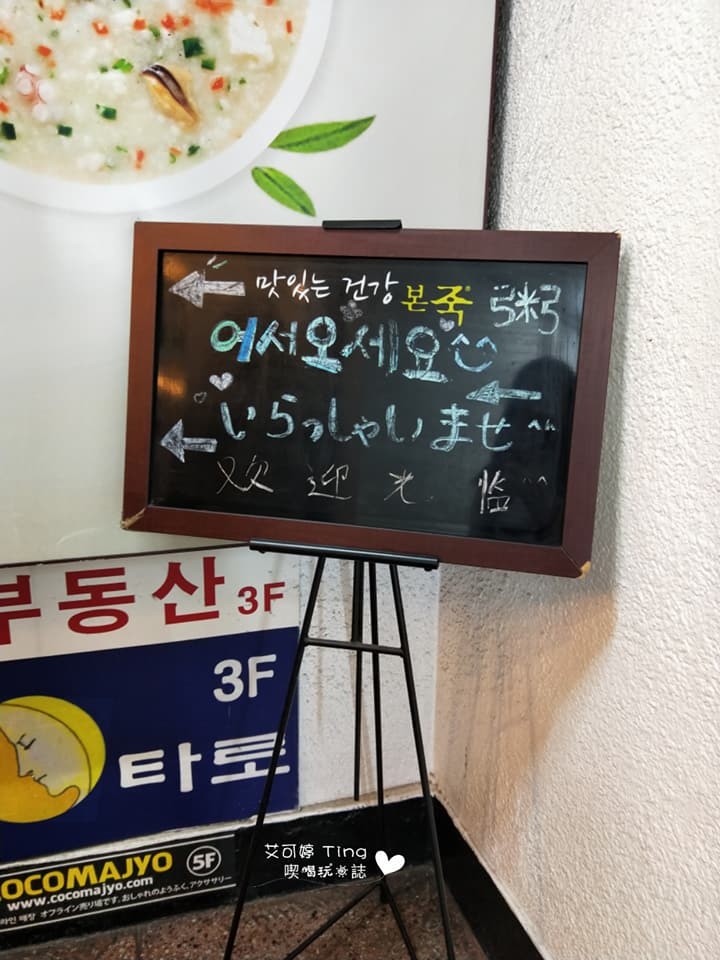 맛있는 건강 본죽 粥
어서오세요
いらっしゃいませ ^^
欢 迎 光 临 ^^
부동산 3F
3F
타로
COCOMAJYO 5F
www.cocomajyo.com
라인 매장 オフライン売り場です. おしゃれのようふく, アクササリー
艾可婷 Ting
喫喝玩樂誌